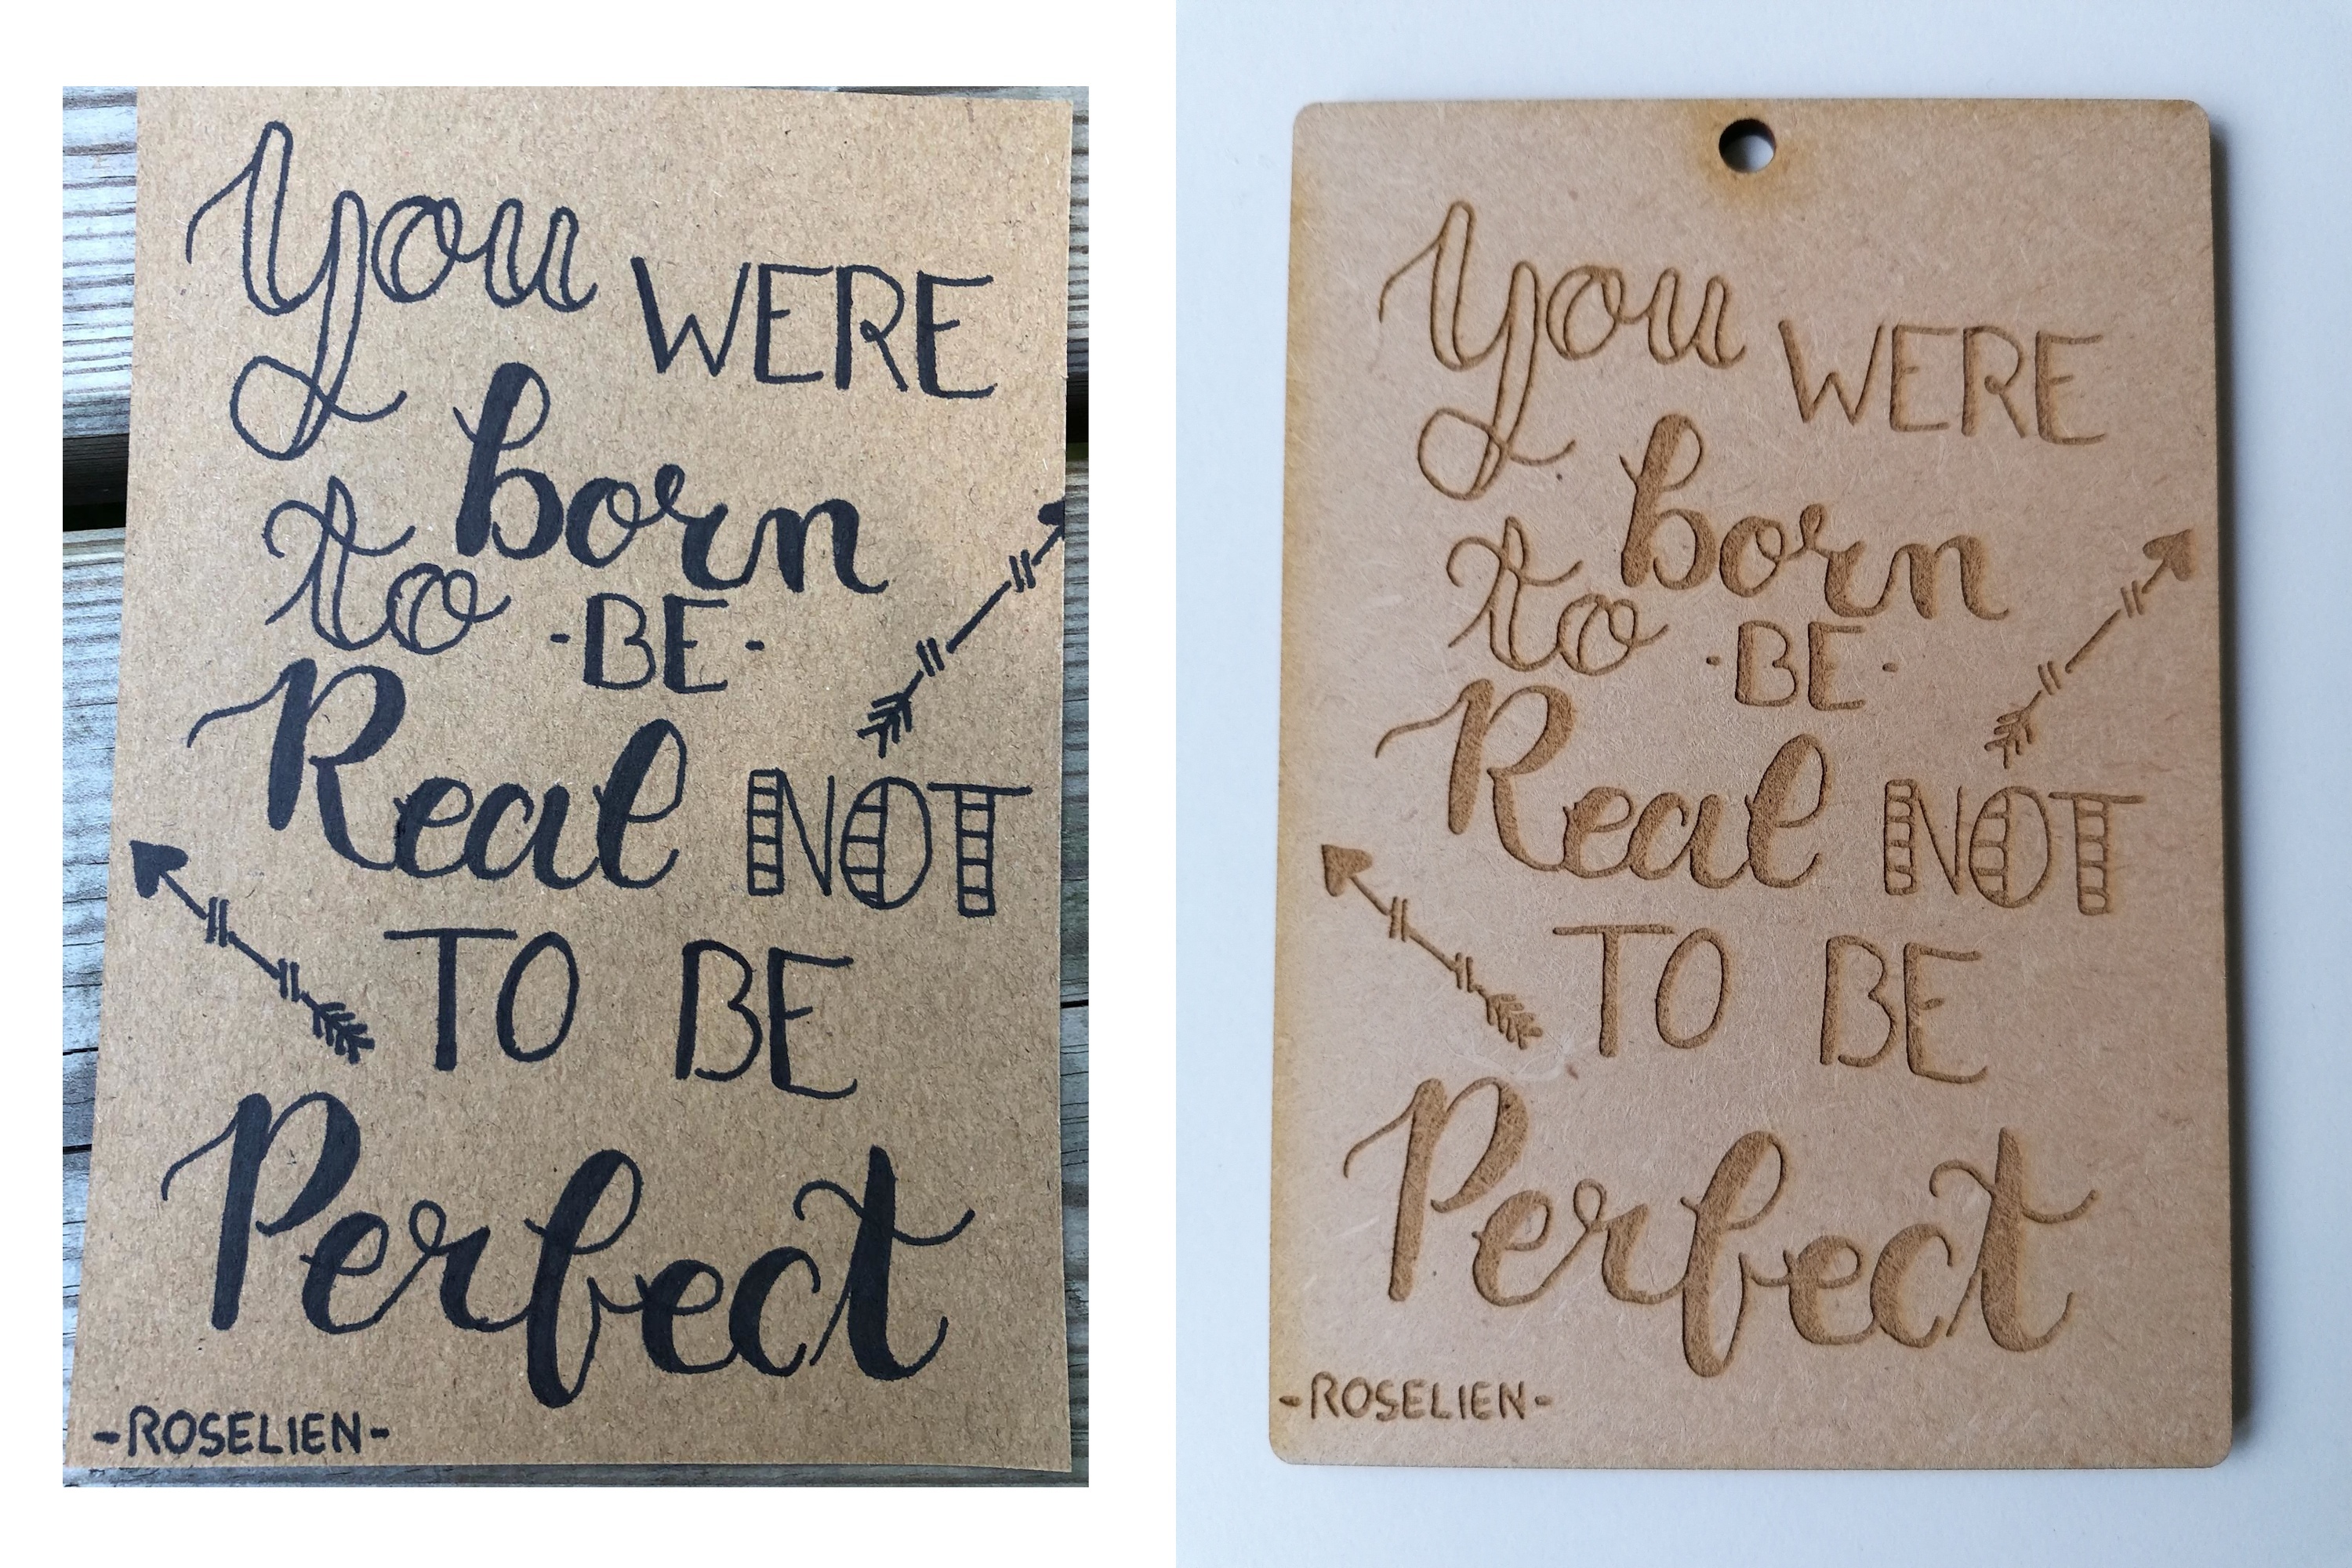 You WERE
born
to -BE-
Real NOT
TO BE
Perfect
-ROSELIEN-
You WERE
born
to ·BE·
Real NOT
TO BE
Perfect
-ROSELIEN-